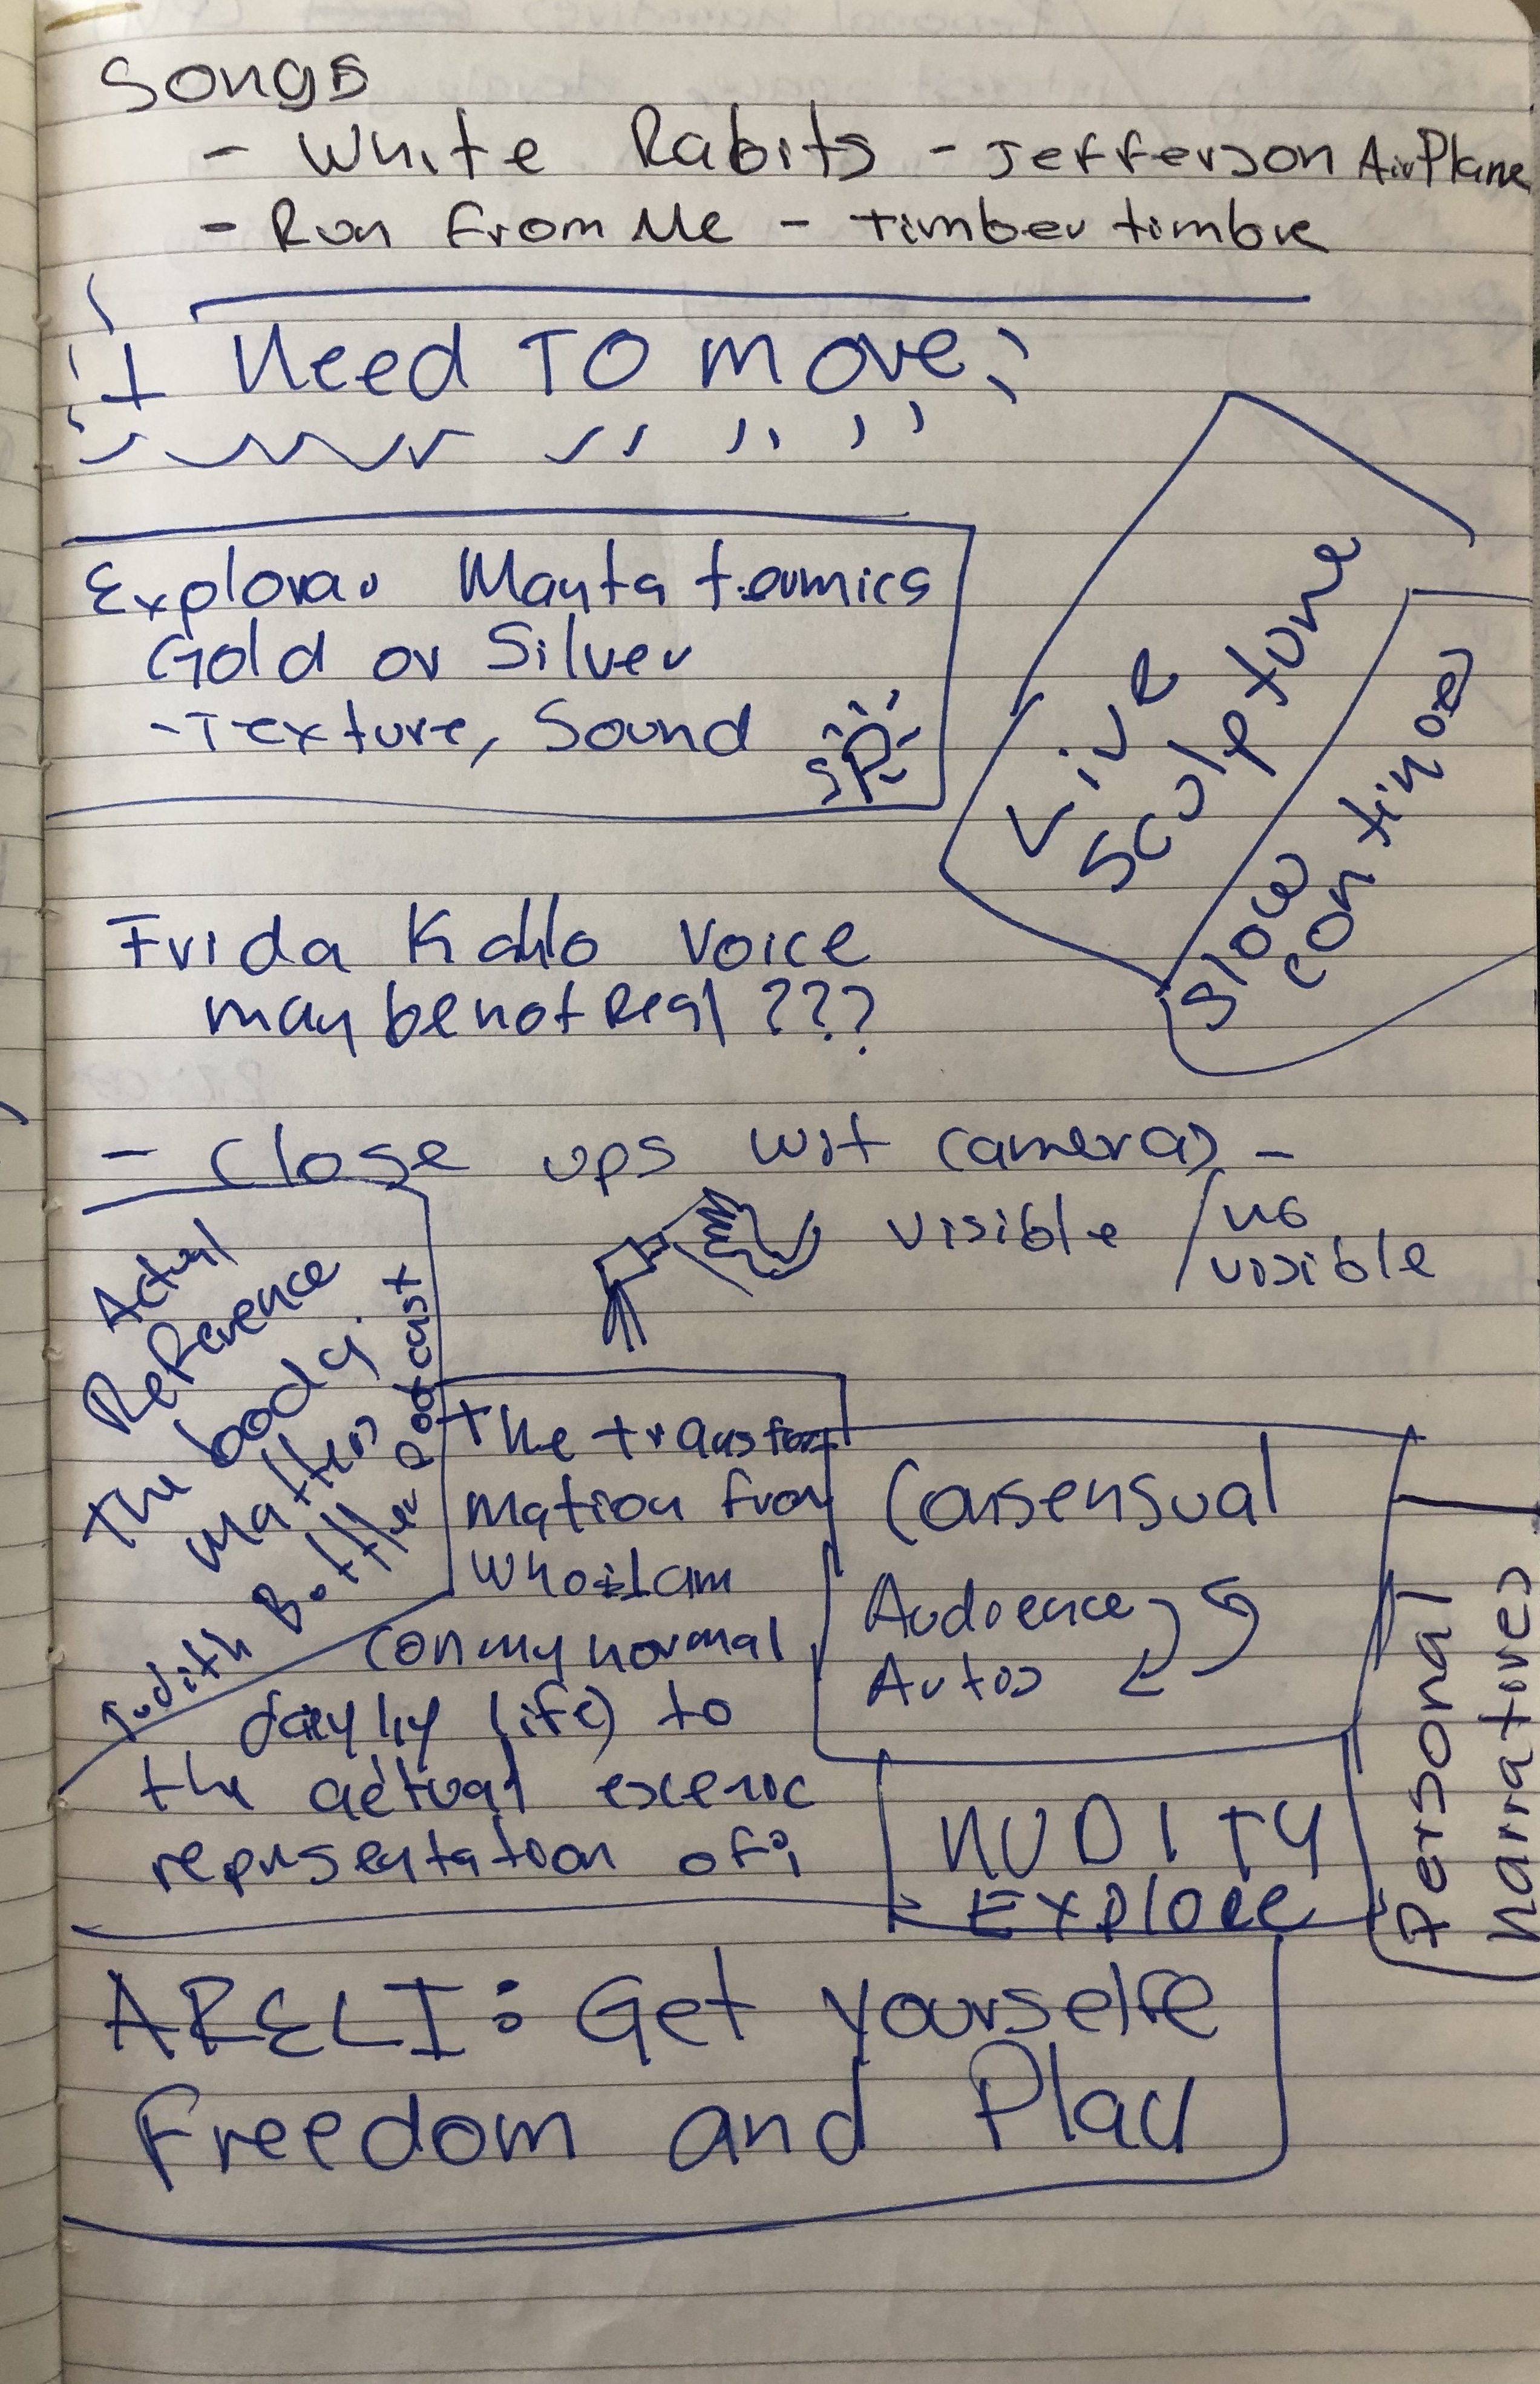 Songs
- White Rabits - Jefferson AirPlane
- Run From Me - timber timbre
I Need TO move
Explorar Manta termics
Gold or Silver
- Texture, Sound
Live
Sculpture
Slow
continoes
Frida Kahlo Voice
may be not Real ???
- Close ups wit cameras -
visible / no
visible
Actual
Reference
The body
matters
Judith Bottler podcast
The transfor
mation from
who is I am
(on my normal
dayly life) to
the actual escenic
representation of:
Consensual
Audience
Autos
Personal
Narratives
NUDITY
EXPLORE
ARELI: Get yourselfe
Freedom and Play